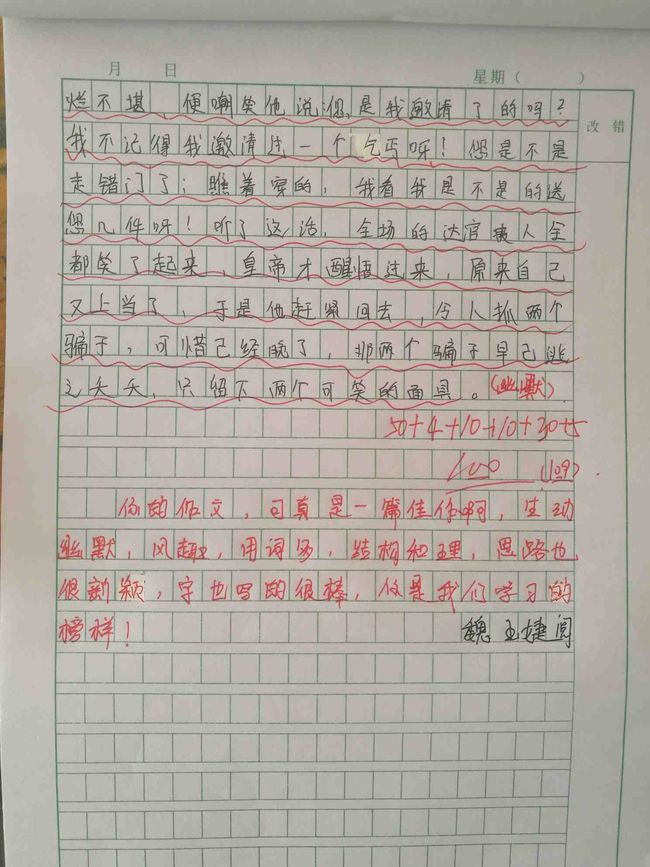 月 日 星期( )
改 错
烂不堪,便嘲笑他说:您是我邀请了的吗?
我不记得我邀请过一个乞丐呀!您是不是
走错门了;瞧着穿的,我看我是不是的送
您几件呀!听了这话,全场的达官贵人全
都笑了起来,皇帝才醒悟过来,原来自己
又上当了,于是他赶紧回去,令人抓两个
骗子,可惜已经晚了,那两个骗子早已逃
之夭夭,只留下两个可笑的面具。(幽默)
50+4+10+10+30+5
100 (109)
你的作文,可真是一篇佳作啊,生动
幽默,风趣,用词多,结构和理,思路也
很新颖,字也写的很棒,你是我们学习的
榜样! 魏玉婕阅